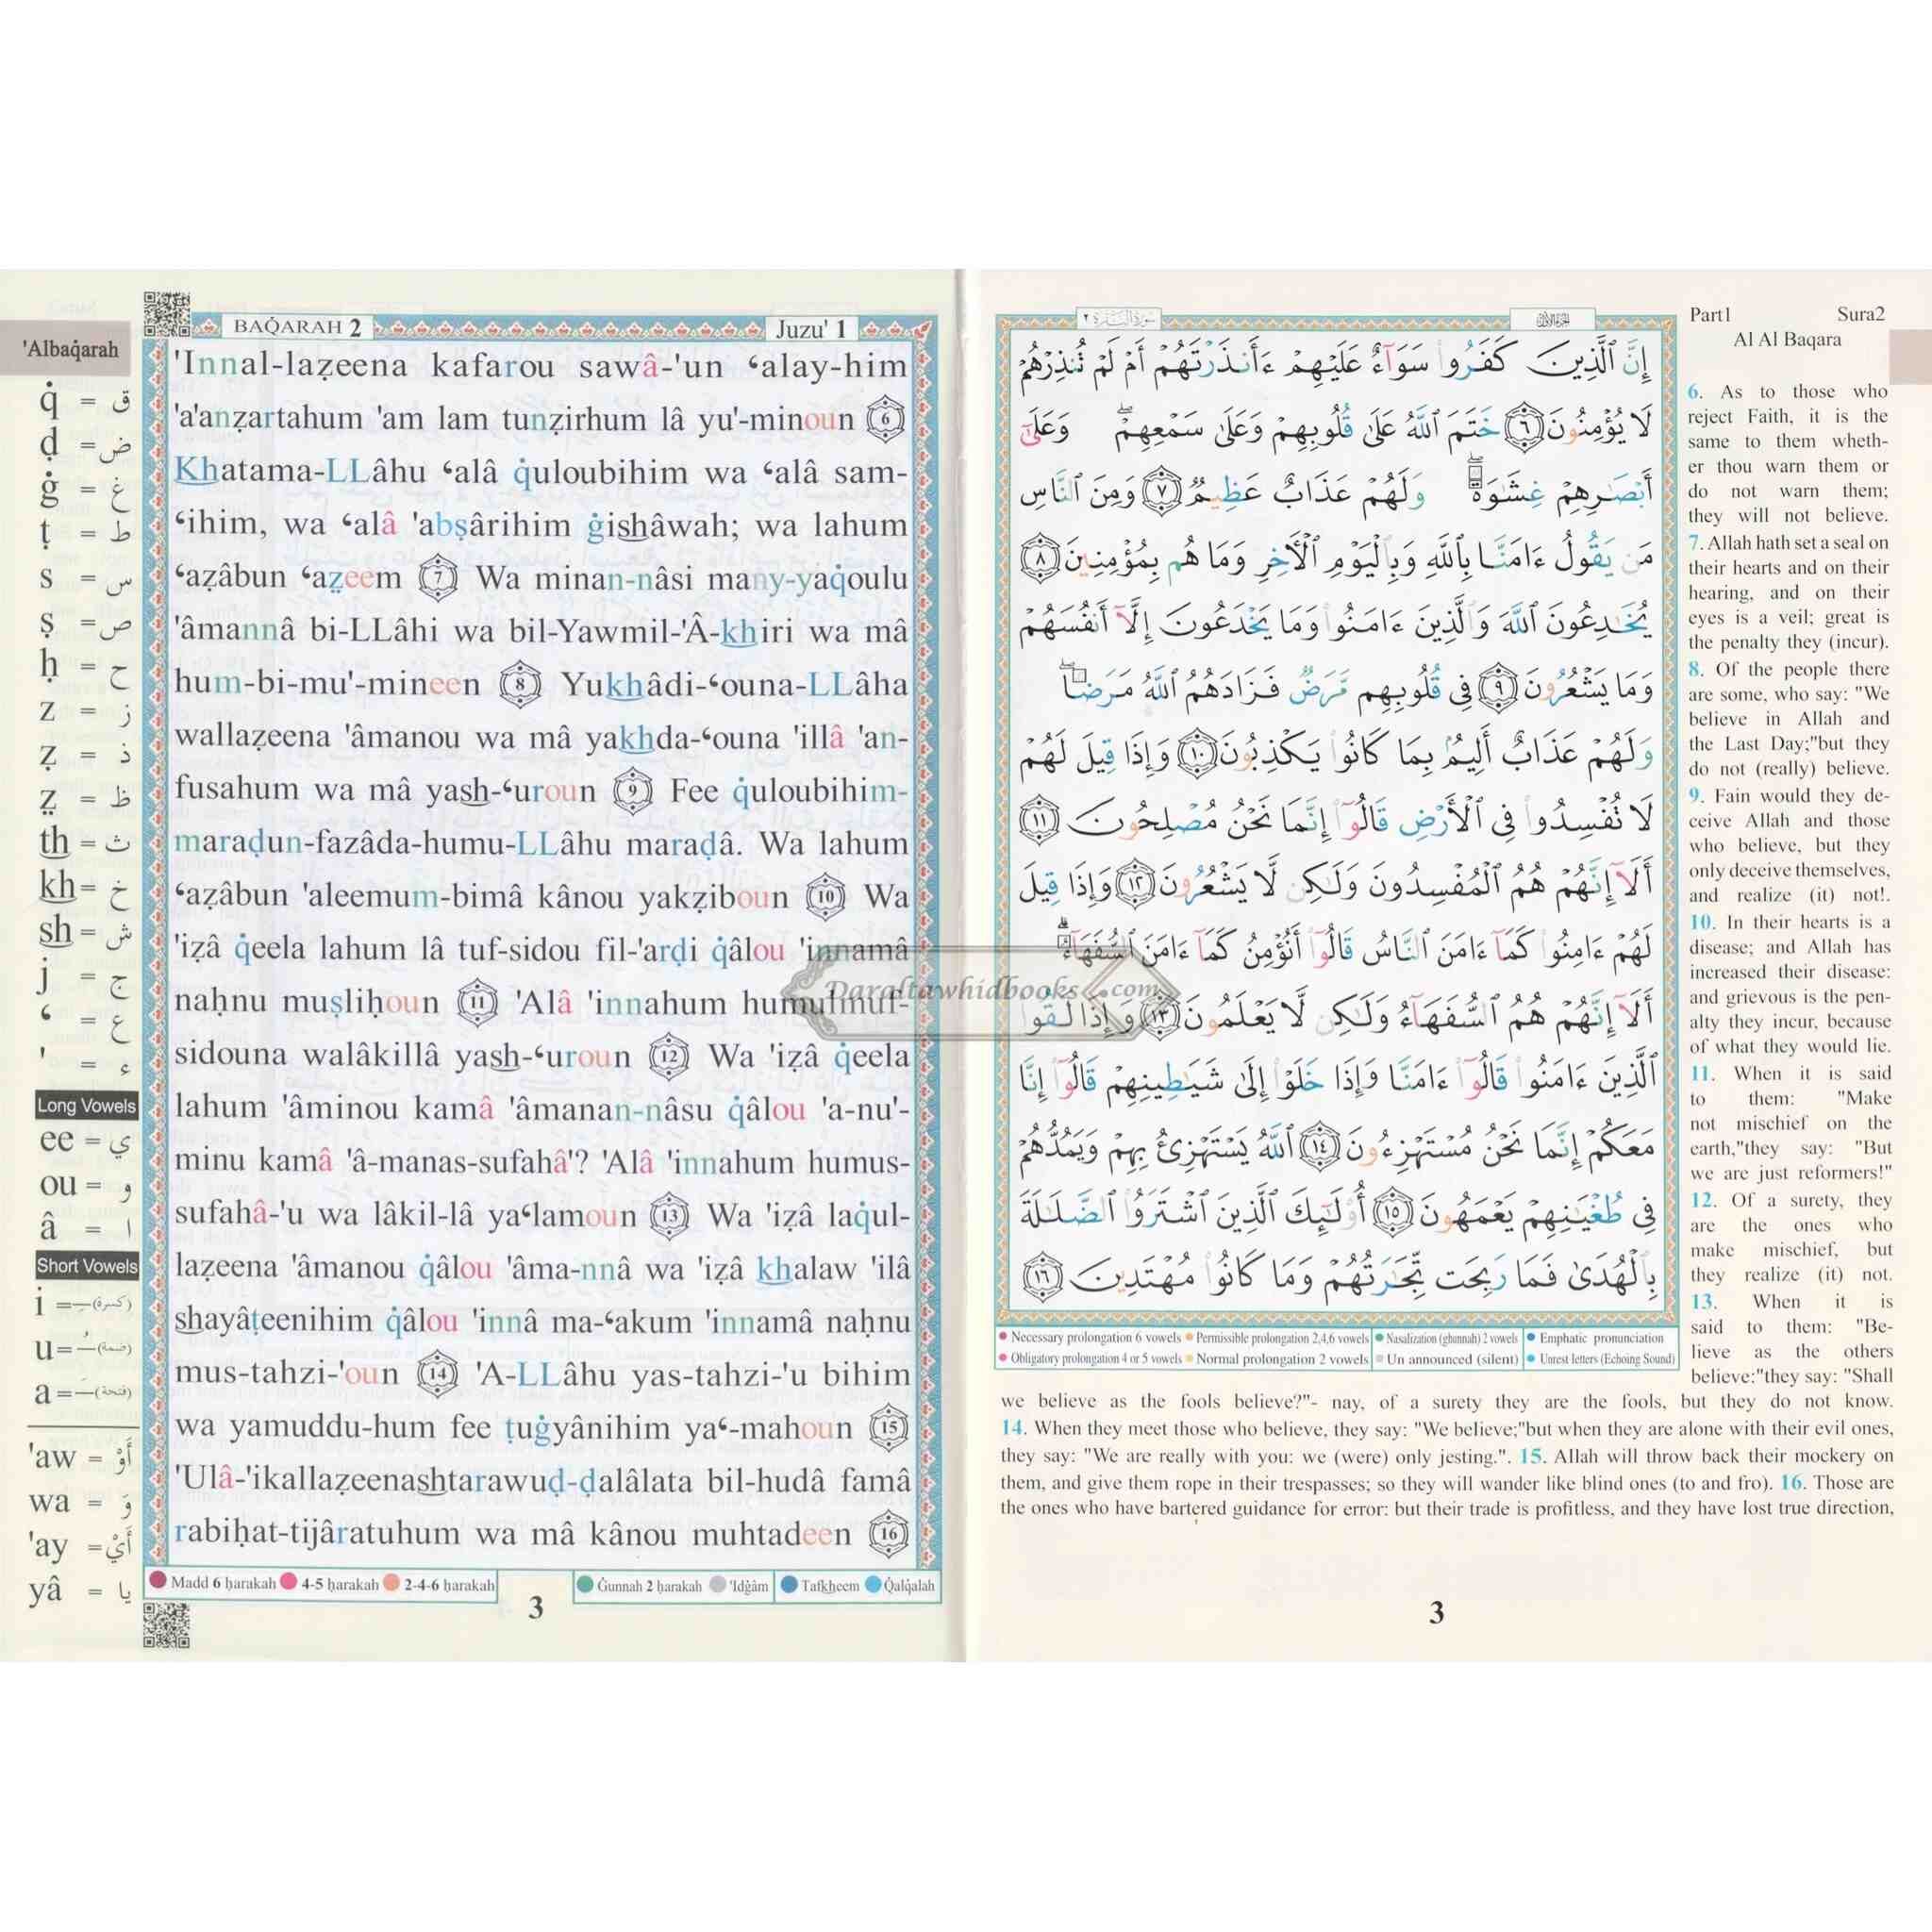 'Albaq̇arah
q̇ = ق
ḍ = ض
ġ = غ
ṭ = ط
s = س
ṣ = ص
ḥ = ح
z = ز
ẓ = ذ
ẓ̤ = ظ
th = ث
kh = خ
sh = ش
j = ج
‘ = ع
' = ء
Long Vowels
ee = ي
ou = و
â = ا
Short Vowels
i = (كسرة)
u = (ضمة)
a = (فتحة)
'aw = أَوْ
wa = وَ
'ay = أَيْ
yâ = يا
BAQ̇ARAH 2
Juzu' 1
'Innal-laẓeena kafarou sawâ-'un ‘alay-him
'a'anẓartahum 'am lam tunẓirhum lâ yu'-minoun 6
Khatama-LLâhu ‘alâ q̇uloubihim wa ‘alâ sam-
‘ihim, wa ‘alâ 'abṣârihim ġishâwah; wa lahum
‘aẓâbun ‘aẓ̤eem 7 Wa minan-nâsi many-yaq̇oulu
'âmannâ bi-LLâhi wa bil-Yawmil-'Â-khiri wa mâ
hum-bi-mu'-mineen 8 Yukhâdi-‘ouna-LLâha
wallaẓeena 'âmanou wa mâ yakhda-‘ouna 'illâ 'an-
fusahum wa mâ yash-‘uroun 9 Fee q̇uloubihim-
maraḍun-fazâda-humu-LLâhu maraḍâ. Wa lahum
‘aẓâbun 'aleemum-bimâ kânou yakẓiboun 10 Wa
'iẓâ q̇eela lahum lâ tuf-sidou fil-'arḍi q̇âlou 'innamâ
naḥnu muṣliḥoun 11 'Alâ 'innahum humulmuf-
sidouna walâkillâ yash-‘uroun 12 Wa 'iẓâ q̇eela
lahum 'âminou kamâ 'âmanan-nâsu q̇âlou 'a-nu'-
minu kamâ 'â-manas-sufahâ'? 'Alâ 'innahum humus-
sufahâ-'u wa lâkil-lâ ya‘lamoun 13 Wa 'iẓâ laq̇ul-
laẓeena 'âmanou q̇âlou 'âma-nnâ wa 'iẓâ khalaw 'ilâ
shayâṭeenihim q̇âlou 'innâ ma-‘akum 'innamâ naḥnu
mus-tahzi-'oun 14 'A-LLâhu yas-tahzi-'u bihim
wa yamuddu-hum fee ṭuġyânihim ya‘-mahoun 15
'Ulâ-'ikallaẓeenashtarawuḍ-ḍalâlata bil-hudâ famâ
rabiḥat-tijâratuhum wa mâ kânou muhtadeen 16
Madd 6 ḥarakah 4-5 ḥarakah 2-4-6 ḥarakah
Ġunnah 2 ḥarakah 'Idġâm Tafkheem Q̇alq̇alah
3
سورة البقرة ٢
الجزء الأول
إِنَّ ٱلَّذِينَ كَفَرُوا۟ سَوَآءٌ عَلَيْهِمْ ءَأَنذَرْتَهُمْ أَمْ لَمْ تُنذِرْهُمْ
لَا يُؤْمِنُونَ ٦ خَتَمَ ٱللَّهُ عَلَىٰ قُلُوبِهِمْ وَعَلَىٰ سَمْعِهِمْ ۖ وَعَلَىٰٓ
أَبْصَـٰرِهِمْ غِشَـٰوَةٌ ۖ وَلَهُمْ عَذَابٌ عَظِيمٌ ٧ وَمِنَ ٱلنَّاسِ
مَن يَقُولُ ءَامَنَّا بِٱللَّهِ وَبِٱلْيَوْمِ ٱلْـَٔاخِرِ وَمَا هُم بِمُؤْمِنِينَ ٨
يُخَـٰدِعُونَ ٱللَّهَ وَٱلَّذِينَ ءَامَنُوا۟ وَمَا يَخْدَعُونَ إِلَّآ أَنفُسَهُمْ
وَمَا يَشْعُرُونَ ٩ فِى قُلُوبِهِم مَّرَضٌ فَزَادَهُمُ ٱللَّهُ مَرَضًا ۖ
وَلَهُمْ عَذَابٌ أَلِيمٌۢ بِمَا كَانُوا۟ يَكْذِبُونَ ١٠ وَإِذَا قِيلَ لَهُمْ
لَا تُفْسِدُوا۟ فِى ٱلْأَرْضِ قَالُوٓا۟ إِنَّمَا نَحْنُ مُصْلِحُونَ ١١
أَلَآ إِنَّهُمْ هُمُ ٱلْمُفْسِدُونَ وَلَـٰكِن لَّا يَشْعُرُونَ ١٢ وَإِذَا قِيلَ
لَهُمْ ءَامِنُوا۟ كَمَآ ءَامَنَ ٱلنَّاسُ قَالُوٓا۟ أَنُؤْمِنُ كَمَآ ءَامَنَ ٱلسُّفَهَآءُ ۗ
أَلَآ إِنَّهُمْ هُمُ ٱلسُّفَهَآءُ وَلَـٰكِن لَّا يَعْلَمُونَ ١٣ وَإِذَا لَقُوا۟
ٱلَّذِينَ ءَامَنُوا۟ قَالُوٓا۟ ءَامَنَّا وَإِذَا خَلَوْا۟ إِلَىٰ شَيَـٰطِينِهِمْ قَالُوٓا۟ إِنَّا
مَعَكُمْ إِنَّمَا نَحْنُ مُسْتَهْزِءُونَ ١٤ ٱللَّهُ يَسْتَهْزِئُ بِهِمْ وَيَمُدُّهُمْ
فِى طُغْيَـٰنِهِمْ يَعْمَهُونَ ١٥ أُو۟لَـٰٓئِكَ ٱلَّذِينَ ٱشْتَرَوُا۟ ٱلضَّلَـٰلَةَ
بِٱلْهُدَىٰ فَمَا رَبِحَت تِّجَـٰرَتُهُمْ وَمَا كَانُوا۟ مُهْتَدِينَ ١٦
Daraltawhidbooks.com
Necessary prolongation 6 vowels Permissible prolongation 2,4,6 vowels Nasalization (ghunnah) 2 vowels Emphatic pronunciation
Obligatory prolongation 4 or 5 vowels Normal prolongation 2 vowels Un announced (silent) Unrest letters (Echoing Sound)
Part1 Sura2
Al Al Baqara
6. As to those who
reject Faith, it is the
same to them wheth-
er thou warn them or
do not warn them;
they will not believe.
7. Allah hath set a seal on
their hearts and on their
hearing, and on their
eyes is a veil; great is
the penalty they (incur).
8. Of the people there
are some, who say: "We
believe in Allah and
the Last Day;"but they
do not (really) believe.
9. Fain would they de-
ceive Allah and those
who believe, but they
only deceive themselves,
and realize (it) not!.
10. In their hearts is a
disease; and Allah has
increased their disease:
and grievous is the pen-
alty they incur, because
of what they would lie.
11. When it is said
to them: "Make
not mischief on the
earth,"they say: "But
we are just reformers!"
12. Of a surety, they
are the ones who
make mischief, but
they realize (it) not.
13. When it is
said to them: "Be-
lieve as the others
believe:"they say: "Shall
we believe as the fools believe?"- nay, of a surety they are the fools, but they do not know.
14. When they meet those who believe, they say: "We believe;"but when they are alone with their evil ones,
they say: "We are really with you: we (were) only jesting.". 15. Allah will throw back their mockery on
them, and give them rope in their trespasses; so they will wander like blind ones (to and fro). 16. Those are
the ones who have bartered guidance for error: but their trade is profitless, and they have lost true direction,
3